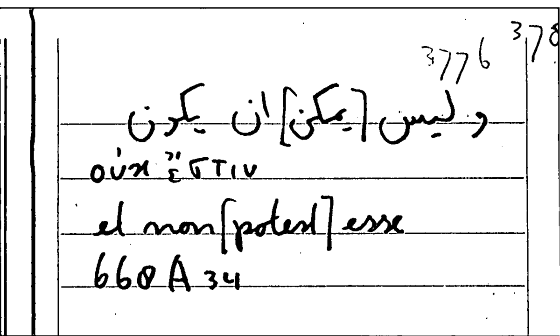 3776 378
وليس [يمكن] ان يكون
οὐκ ἔστιν
et non [potest] esse
660 A 34